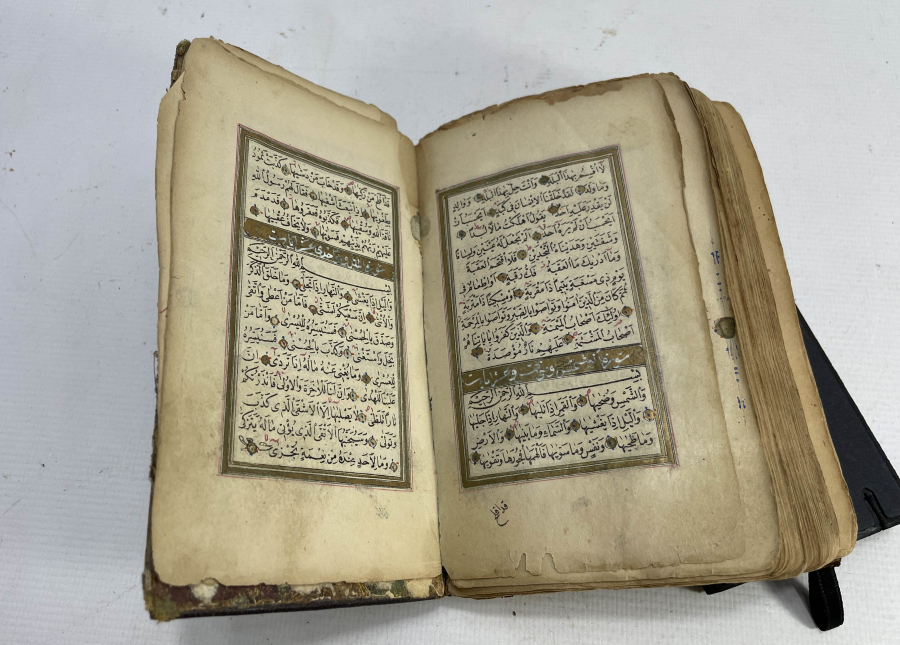 لَا اُقْسِمُ بِهٰذَا الْبَلَدِ وَاَنْتَ حِلٌّ بِهٰذَا الْبَلَدِ وَوَالِدٍ
وَمَا وَلَدَ لَقَدْ خَلَقْنَا الْاِنْسَانَ فِي كَبَدٍ اَيَحْسَبُ اَنْ
لَنْ يَقْدِرَ عَلَيْهِ اَحَدٌ يَقُولُ اَهْلَكْتُ مَالًا لُبَدًا
اَيَحْسَبُ اَنْ لَمْ يَرَهُ اَحَدٌ اَلَمْ نَجْعَلْ لَهُ عَيْنَيْنِ وَلِسَانًا
وَشَفَتَيْنِ وَهَدَيْنَاهُ النَّجْدَيْنِ فَلَا اقْتَحَمَ الْعَقَبَةَ
وَمَا اَدْرٰيكَ مَا الْعَقَبَةُ فَكُّ رَقَبَةٍ اَوْ اِطْعَامٌ فِي
يَوْمٍ ذِي مَسْغَبَةٍ يَتِيمًا ذَا مَقْرَبَةٍ اَوْ مِسْكِينًا ذَا مَتْرَبَةٍ
ثُمَّ كَانَ مِنَ الَّذِينَ اٰمَنُوا وَتَوَاصَوْا بِالصَّبْرِ وَتَوَاصَوْا بِالْمَرْحَمَةِ
اُولٰئِكَ اَصْحَابُ الْمَيْمَنَةِ وَالَّذِينَ كَفَرُوا بِاٰيَاتِنَا هُمْ
اَصْحَابُ الْمَشْئَمَةِ عَلَيْهِمْ نَارٌ مُؤْصَدَةٌ
سورة الشمس
بسم الله الرحمن الرحيم
وَالشَّمْسِ وَضُحٰيهَا وَالْقَمَرِ اِذَا تَلٰيهَا وَالنَّهَارِ اِذَا جَلّٰيهَا
وَالَّيْلِ اِذَا يَغْشٰيهَا وَالسَّمَاءِ وَمَا بَنٰيهَا وَالْاَرْضِ
وَمَا طَحٰيهَا وَنَفْسٍ وَمَا سَوّٰيهَا فَاَلْهَمَهَا فُجُورَهَا وَتَقْوٰيهَا
قد افلح
قَدْ اَفْلَحَ مَنْ زَكّٰيهَا وَقَدْ خَابَ مَنْ دَسّٰيهَا كَذَّبَتْ ثَمُودُ
بِطَغْوٰيهَا اِذِ انْبَعَثَ اَشْقٰيهَا فَقَالَ لَهُمْ رَسُولُ اللّٰهِ
نَاقَةَ اللّٰهِ وَسُقْيٰيهَا فَكَذَّبُوهُ فَعَقَرُوهَا فَدَمْدَمَ
عَلَيْهِمْ رَبُّهُمْ بِذَنْبِهِمْ فَسَوّٰيهَا وَلَا يَخَافُ عُقْبٰيهَا
سورة الليل احدى وعشرون ايات
بسم الله الرحمن الرحيم
وَالَّيْلِ اِذَا يَغْشٰى وَالنَّهَارِ اِذَا تَجَلّٰى وَمَا خَلَقَ الذَّكَرَ
وَالْاُنْثٰى اِنَّ سَعْيَكُمْ لَشَتّٰى فَاَمَّا مَنْ اَعْطٰى وَاتَّقٰى
وَصَدَّقَ بِالْحُسْنٰى فَسَنُيَسِّرُهُ لِلْيُسْرٰى وَاَمَّا مَنْ
بَخِلَ وَاسْتَغْنٰى وَكَذَّبَ بِالْحُسْنٰى فَسَنُيَسِّرُهُ
لِلْعُسْرٰى وَمَا يُغْنِي عَنْهُ مَالُهُ اِذَا تَرَدّٰى اِنَّ
عَلَيْنَا لَلْهُدٰى وَاِنَّ لَنَا لَلْاٰخِرَةَ وَالْاُولٰى فَاَنْذَرْتُكُمْ
نَارًا تَلَظّٰى لَا يَصْلٰيهَا اِلَّا الْاَشْقَى الَّذِي كَذَّبَ
وَتَوَلّٰى وَسَيُجَنَّبُهَا الْاَتْقَى الَّذِي يُؤْتِي مَالَهُ يَتَزَكّٰى
وَمَا لِاَحَدٍ عِنْدَهُ مِنْ نِعْمَةٍ تُجْزٰى